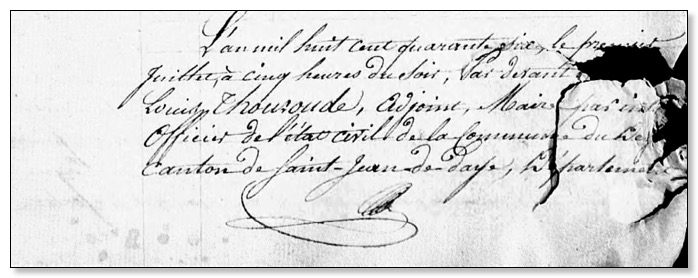 L'an mil huit cent quarante six, le premier
Juillet, à cinq heures du soir, Par devant
Louis Thouroude, Adjoint, Maire par int
Officier de l'état civil de la Commune du De
Canton de Saint-Jean-de-daye, Départemen